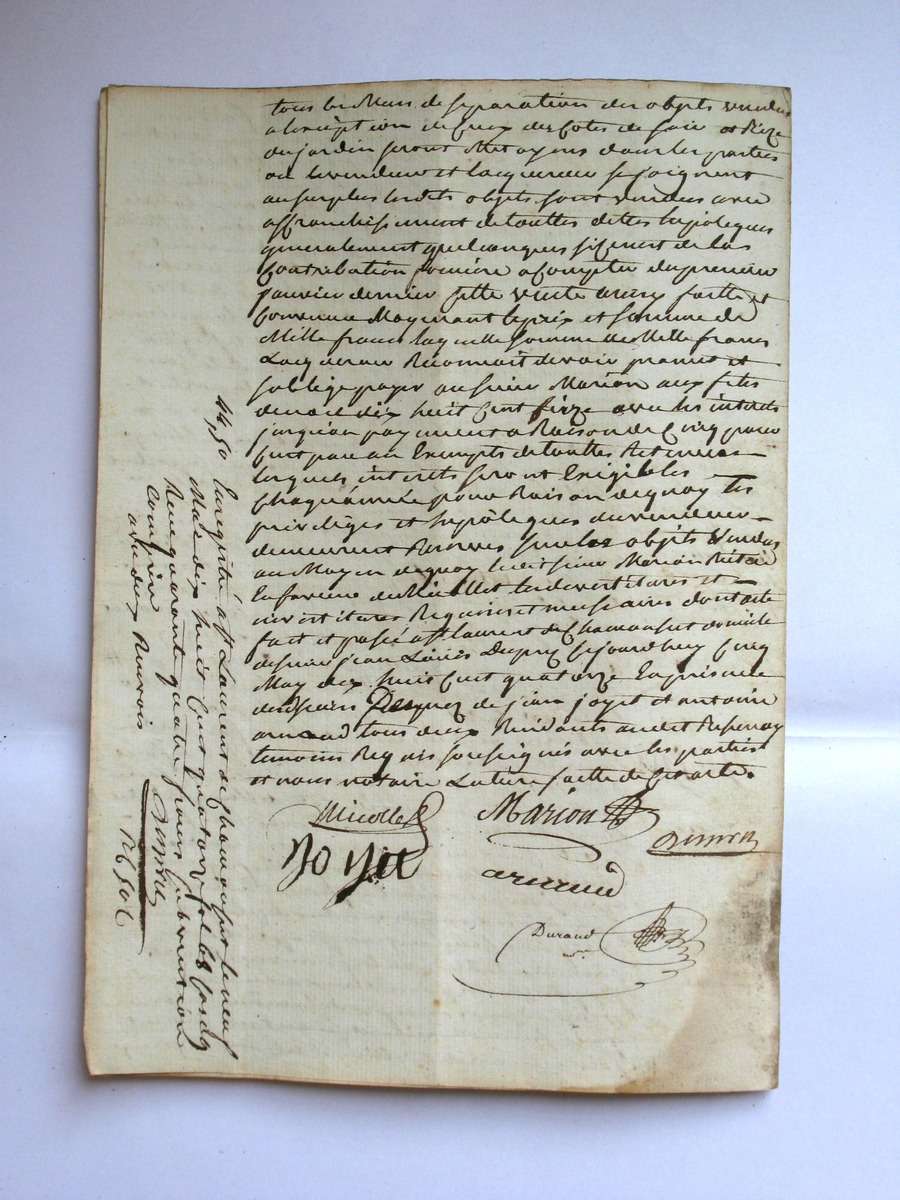 tous les Murs de separation des objets vendus
a lexception de Ceux des Cotes de soir et Bize
du jardin seront Mitoyens dans les parties
ou le vendeur et lacquereur se joignent
au surplus lesdits objets sont vendus avec
affranchissement de touttes dettes hypoteques
generalement quelconques si ce nest de la
Contribution fonciere a Compter du premier
janvier dernier Cette vente ainsy faitte et
Convenue Moyenant le prix et somme de
Mille francs laquelle somme de Mille francs
Lacquereur Reconnait devoir promet et
soblige payer au sieur Marion aux fetes
de noel dix huit Cent seize avec les interets
jusqu'au payement a Raison de Cinq pour
Cent par an Exempts de touttes Retenues
lesquels interets seront Exigibles
Chaque année pour Raison de quoy les
privileges et hypoteques du vendeur
demeurent Reserves sur les objets Vendus
au Moyen de quoy ledit sieur Marion
En faveur du Micollet les devestitures et
investitures Requises et necessaires dont acte
fait et passé a St laurent de Chamousset domicile
de sieur jean Louis Dupuy Cejourdhuy Cinq
May dix huit Cent quatorze En presence
de jean joyet et antoine
armand tous deux Residants audit
temoins Requis soussignés avec les parties
et nous notaire Lecture faitte de Cet acte.
Micollet
Marion
joyet
armand
Durand
nre
44,50 Enregistré a St Laurent de Chamousset le neuf
Mai dix huit Cent quatorze folio 68
Recu quarante quatre francs Subvention
Comprise
a deux Renvois